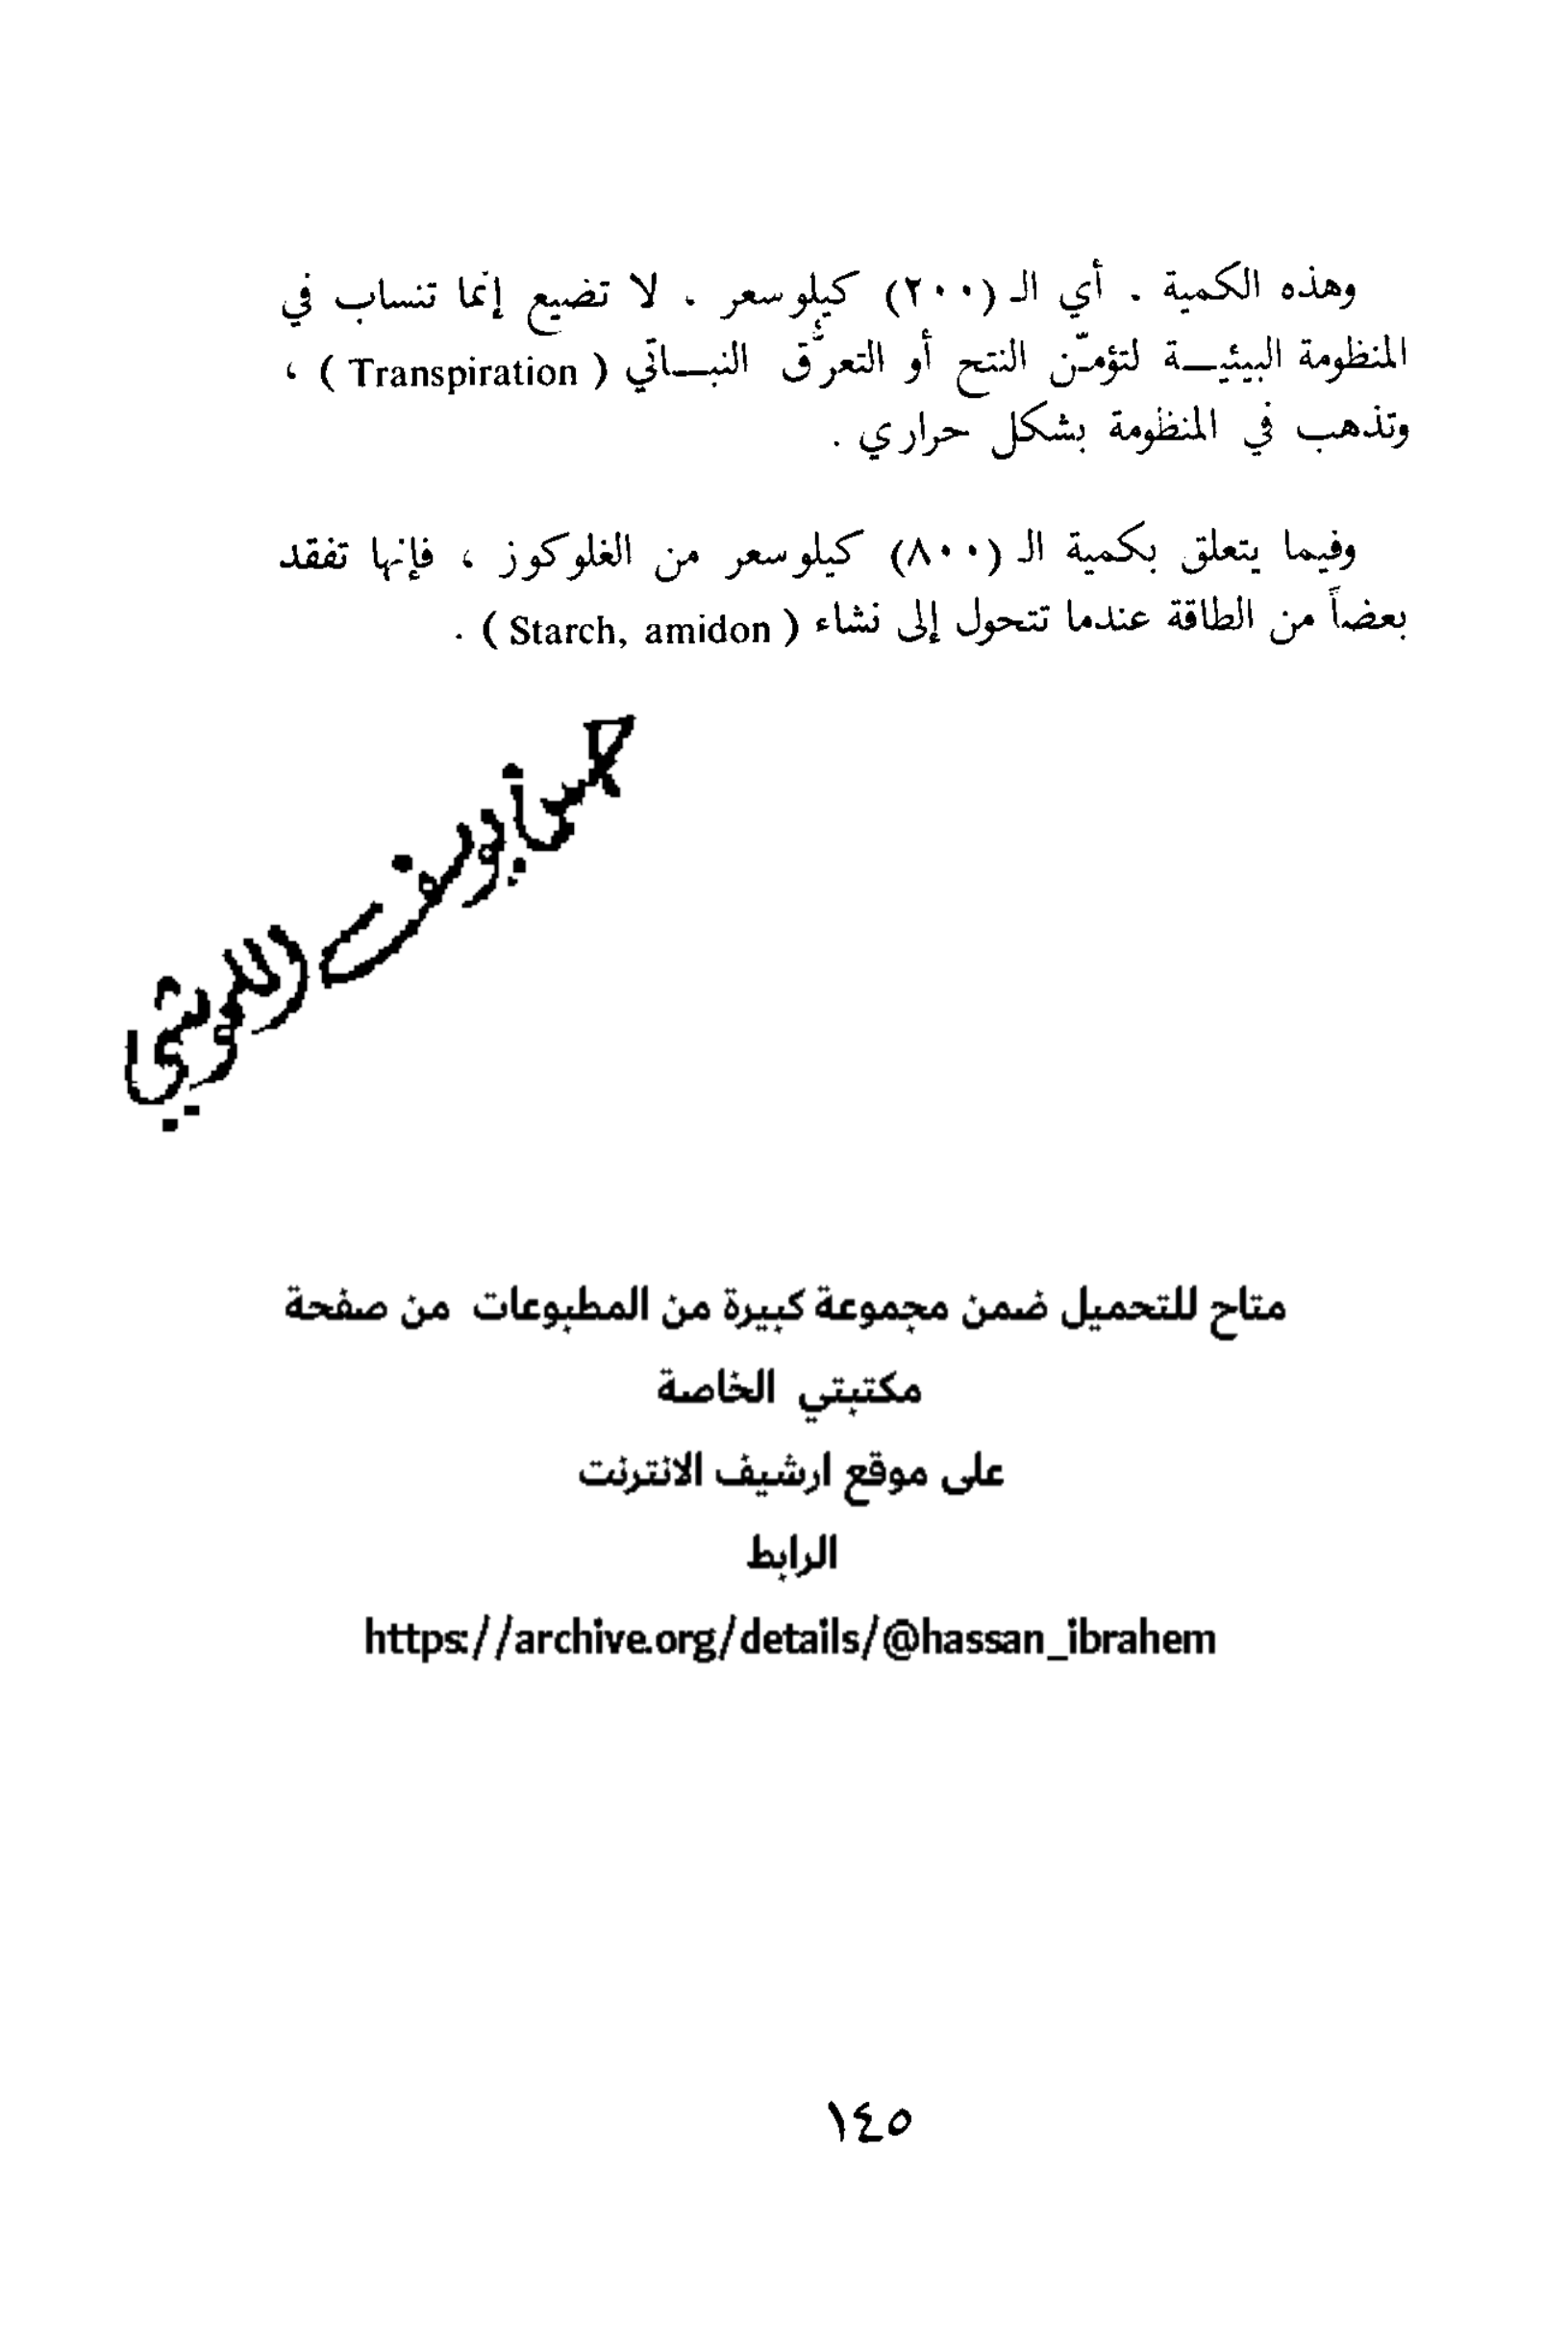 وهذه الكمية . أي الـ (٢٠٠) كيلو سعر . لا تضيع إنما تنساب في
المنظومة البيئيـــة لتؤمـّن النتح أو التعرُّق النبـــاتي ( Transpiration ) ،
وتذهب في المنظومة بشكل حراري .
وفيما يتعلق بكمية الـ (٨٠٠) كيلو سعر من الغلوكوز ، فإنها تفقد
بعضاً من الطاقة عندما تتحول إلى نشاء ( Starch, amidon ) .
متاح للتحميل ضمن مجموعة كبيرة من المطبوعات من صفحة
مكتبتي الخاصة
على موقع ارشيف الانترنت
الرابط
https://archive.org/details/@hassan_ibrahem
١٤٥